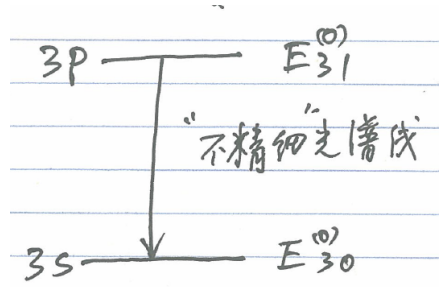 3P E₃₁⁽⁰⁾
"不精细"光谱线
3S E₃₀⁽⁰⁾